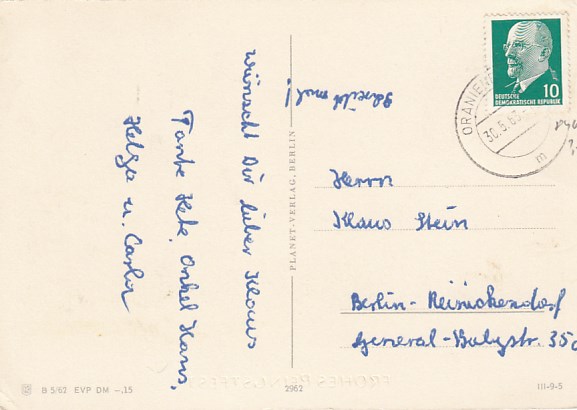 wünscht Dir lieber Klaus
Tante Hete, Onkel Hans,
Helga u. Carla
Schreibt mal!
PLANET-VERLAG, BERLIN
DEUTSCHE
DEMOKRATISCHE REPUBLIK
10
ORANIEN
30.5.63
m
Herrn
Klaus Stein
Berlin-Reinickendorf
General-Barbystr. 35
B 5/62 EVP DM -,15
2962
III-9-5